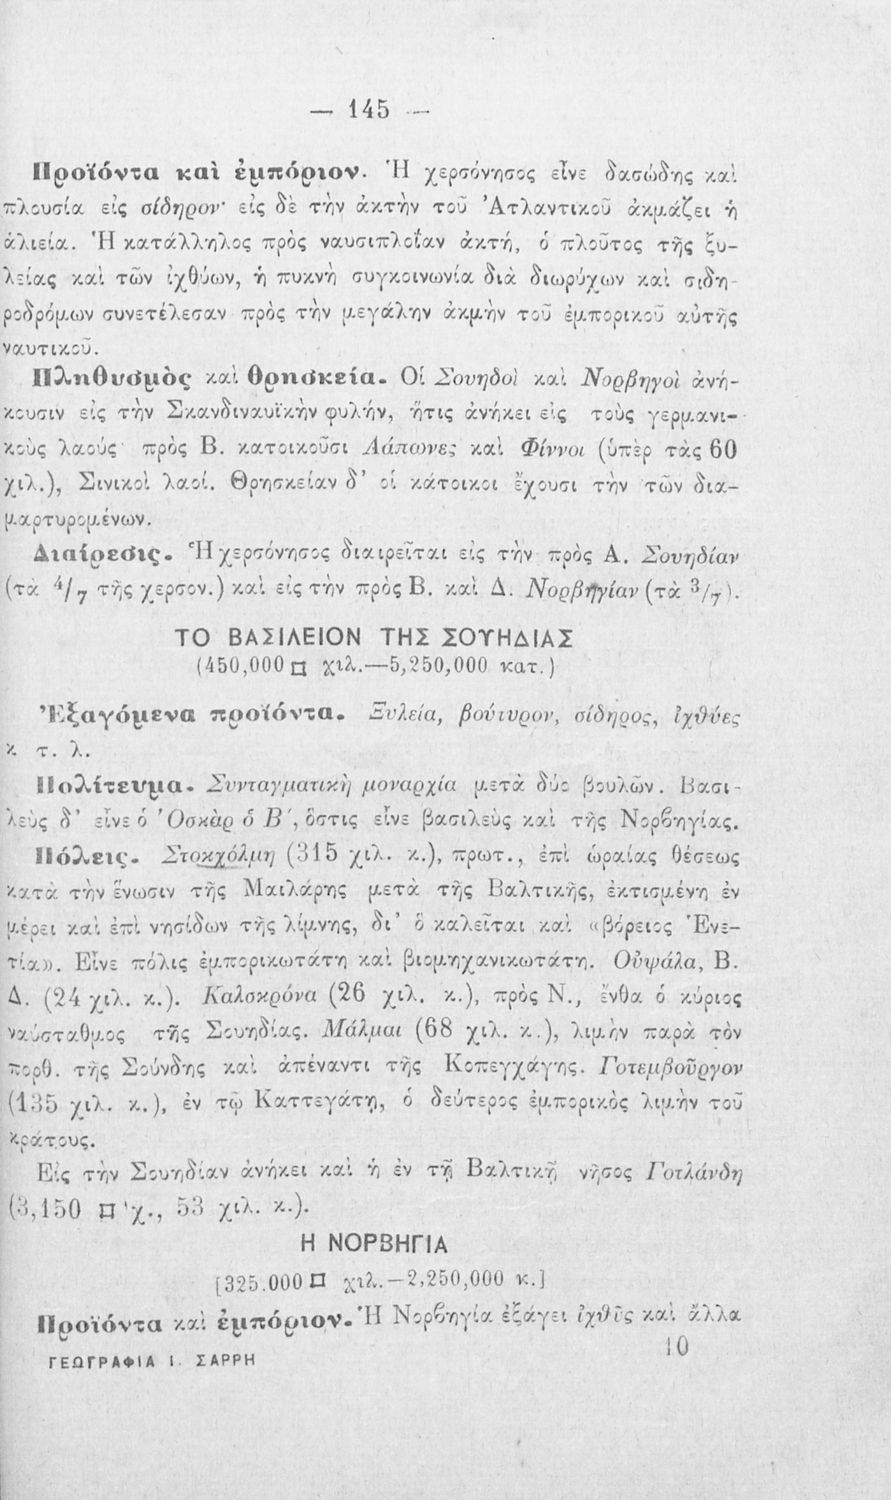 — 145 —
Προϊόντα καὶ ἐμπόριον. Ἡ χερσόνησος εἶνε δασώδης καὶ
πλουσία εἰς σίδηρον· εἰς δὲ τὴν ἀκτὴν τοῦ Ἀτλαντικοῦ ἀκμάζει ἡ
ἁλιεία. Ἡ κατάλληλος πρὸς ναυσιπλοΐαν ἀκτή, ὁ πλοῦτος τῆς ξυ-
λείας καὶ τῶν ἰχθύων, ἡ πυκνὴ συγκοινωνία διὰ διωρύχων καὶ σιδη-
ροδρόμων συνετέλεσαν πρὸς τὴν μεγάλην ἀκμὴν τοῦ ἐμπορικοῦ αὐτῆς
ναυτικοῦ.
Πληθυσμὸς καὶ θρησκεία. Οἱ Σουηδοὶ καὶ Νορβηγοὶ ἀνή-
κουσιν εἰς τὴν Σκανδιναυϊκὴν φυλήν, ἥτις ἀνήκει εἰς τοὺς γερμανι-
κοὺς λαούς· πρὸς Β. κατοικοῦσι Λάπωνες καὶ Φίννοι (ὑπὲρ τὰς 60
χιλ.), Σινικοὶ λαοί. Θρησκείαν δ’ οἱ κάτοικοι ἔχουσι τὴν τῶν δια-
μαρτυρομένων.
Διαίρεσις. Ἡ χερσόνησος διαιρεῖται εἰς τὴν πρὸς Α. Σουηδίαν
(τὰ 4/7 τῆς χερσον.) καὶ εἰς τὴν πρὸς Β. καὶ Δ. Νορβηγίαν (τὰ 3/7).
ΤΟ ΒΑΣΙΛΕΙΟΝ ΤΗΣ ΣΟΥΗΔΙΑΣ
(450,000 □ χιλ.—5,250,000 κατ.)
Ἐξαγόμενα προϊόντα. Ξυλεία, βούτυρον, σίδηρος, ἰχθύες
κ τ. λ.
Πολίτευμα. Συνταγματικὴ μοναρχία μετὰ δύο βουλῶν. Βασι-
λεὺς δ’ εἶνε ὁ Ὀσκὰρ ὁ Β΄, ὅστις εἶνε βασιλεὺς καὶ τῆς Νορβηγίας.
Πόλεις. Στοκχόλμη (315 χιλ. κ.), πρωτ., ἐπὶ ὡραίας θέσεως
κατὰ τὴν ἕνωσιν τῆς Μαιλάρης μετὰ τῆς Βαλτικῆς, ἐκτισμένη ἐν
μέρει καὶ ἐπὶ νησίδων τῆς λίμνης, δι’ ὃ καλεῖται καὶ «βόρειος Ἑνε-
τία». Εἶνε πόλις ἐμπορικωτάτη καὶ βιομηχανικωτάτη. Οὐψάλα, Β.
Δ. (24 χιλ. κ.). Καλσκρόνα (26 χιλ. κ.), πρὸς Ν., ἔνθα ὁ κύριος
ναύσταθμος τῆς Σουηδίας. Μάλμαι (68 χιλ. κ.), λιμὴν παρὰ τὸν
πορθ. τῆς Σούνδης καὶ ἀπέναντι τῆς Κοπεγχάγης. Γοτεμβοῦργον
(135 χιλ. κ.), ἐν τῷ Καττεγάτῃ, ὁ δεύτερος ἐμπορικὸς λιμὴν τοῦ
κράτους.
Εἰς τὴν Σουηδίαν ἀνήκει καὶ ἡ ἐν τῇ Βαλτικῇ νῆσος Γοτλάνδη
(3,150 □ 'χ., 53 χιλ. κ.).
Η ΝΟΡΒΗΓΙΑ
[325.000 □ χιλ.—2,250,000 κ.]
Προϊόντα καὶ ἐμπόριον. Ἡ Νορβηγία ἐξάγει ἰχθῦς καὶ ἄλλα
ΓΕΩΓΡΑΦΙΑ Ι. ΣΑΡΡΗ
10